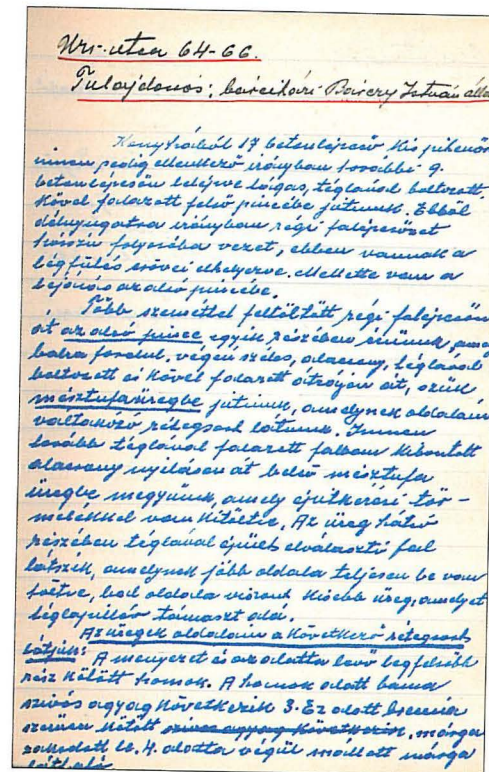 Uri-utca 64-66.
Tulajdonos: bárciházi Bárczy István álla
Konyhából 17 betonlépcső kis pihenőn
innen pedig ellenkező irányban további 9
betonlépcsőn lefelé tágas, téglával boltozott
kővel falazott felső pincébe jutunk. Ebből
délnyugatra irányban régi falépcsőzet
hosszú folyosóba vezet, ebben vannak a
légfűtés csövei elhelyezve. Mellette van a
lejárás az alsó pincébe.
Több szeméttel feltöltött régi falépcsőn
át az alsó pince egyik részében érünk,
balra fordul, végén széles, alacsony, téglával
boltozott és kővel falazott átjárón át, szűk
mésztufaüregbe jutunk, amelynek oldalain
váltakozó rétegsort látunk. Innen
tovább téglával falazott falban kibontott
alacsony nyíláson át belső mésztufa
üregbe megyünk, amely építkezési tör-
melékkel van kitöltve. Az üreg hátsó
részében téglával épült elválasztó fal
látszik, amelynek jobb oldala teljesen be van
töltve, bal oldala viszont kisebb üreg, amelyet
téglapillér támaszt alá.
Az üregek oldalain a következő rétegsort
látjuk: A menyezet és az alatta levő legfelsőbb
rész kötött homok. A homok alatt barna
szívós agyag következik 3. Ez alatt breccia
szerűen kötött szívós agyag következik, márga
rakodott le, 4. alatta végül mállott márga
látható